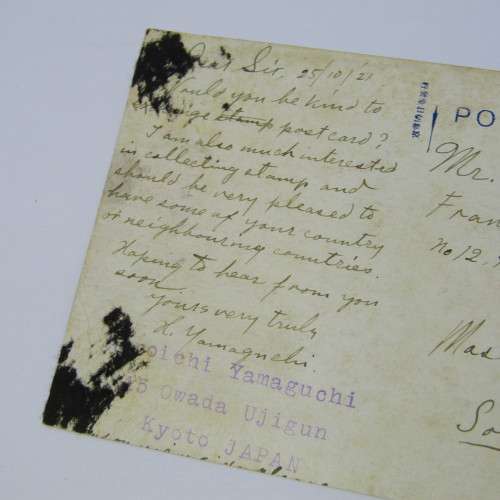 Dear Sir, 25/10/21
Would you be kind to
stamp post card?
I am also much interested
in collecting stamp and
should be very pleased to
have some of your country
or neighbouring countries.
Hoping to hear from you
soon
Yours very truly
K. Yamaguchi.
oichi Yamaguchi
5 Owada Ujigun
Kyoto JAPAN
PO
Mr.
Fran
No 12,
Mad
So